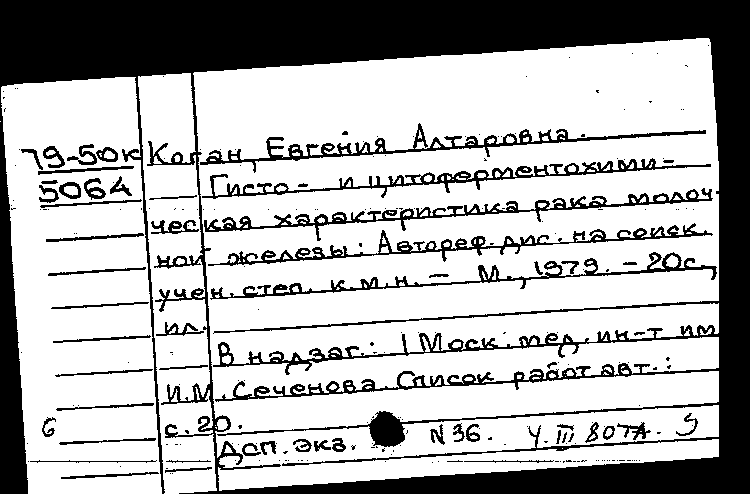 79-50к Коган, Евгения Алтаровна.
5064 Гисто- и цитоферментохими-
ческая характеристика рака молоч-
ной железы: Автореф. дис. на соиск.
учен. степ. к.м.н. – М., 1979. – 20с.,
ил.
В надзаг.: 1 Моск. мед. ин-т им
И.М. Сеченова. Список работ авт.:
с. 20.
Дсп. экз. N 36.
6